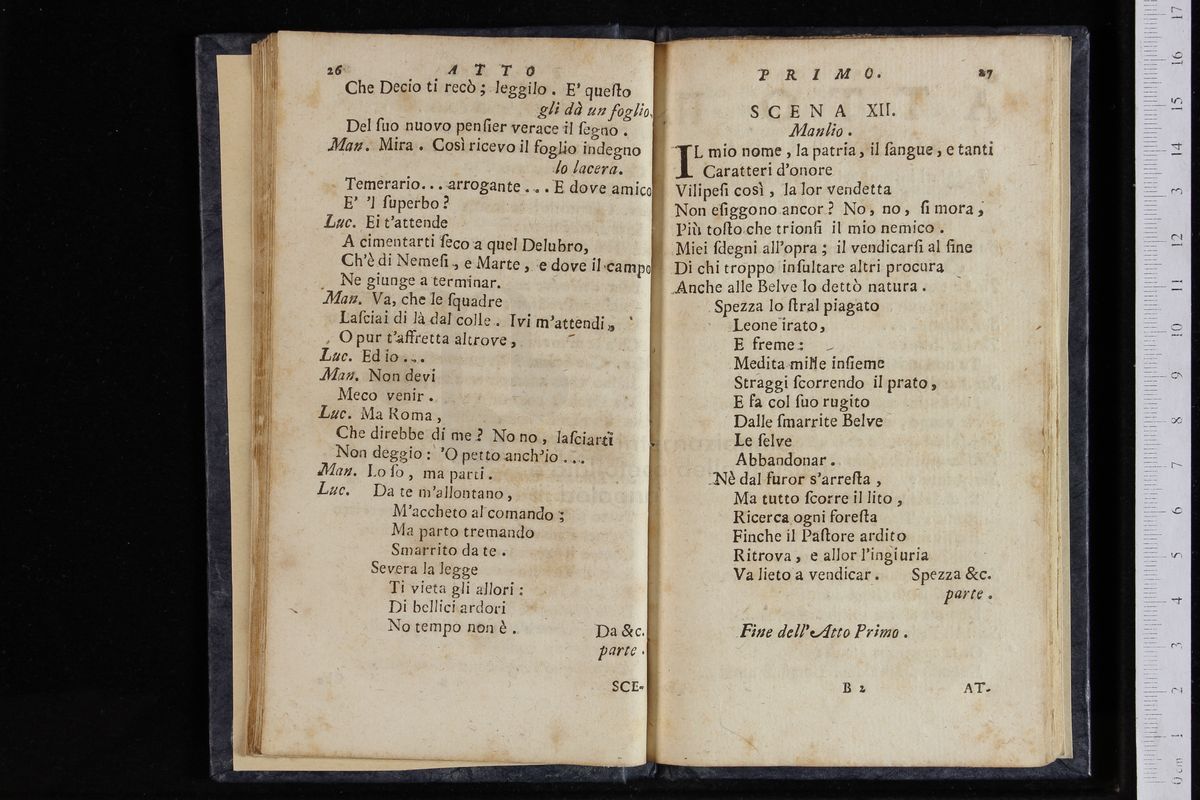 26 ATTO
Che Decio ti recò ; leggilo . E' queſto
gli dà un foglio.
Del ſuo nuovo penſier verace il ſegno .
Man. Mira . Così ricevo il foglio indegno
lo lacera.
Temerario... arrogante ... E dove amico
E' 'l ſuperbo ?
Luc. Ei t'attende
A cimentarti ſeco a quel Delubro,
Ch'è di Nemeſi , e Marte , e dove il campo
Ne giunge a terminar.
Man. Va, che le ſquadre
Laſciai di là dal colle . Ivi m'attendi,
O pur t'affretta altrove ,
Luc. Ed io ...
Man. Non devi
Meco venir .
Luc. Ma Roma ,
Che direbbe di me ? No no , laſciarti
Non deggio : 'O petto anch'io ...
Man. Lo ſo , ma parti .
Luc. Da te m'allontano ,
M'accheto al comando ;
Ma parto tremando
Smarrito da te .
Severa la legge
Ti vieta gli allori :
Di bellici ardori
No tempo non è . Da &c.
parte .
SCE-
PRIMO. 27
SCENA XII.
Manlio .
IL mio nome , la patria , il ſangue , e tanti
Caratteri d'onore
Vilipeſi così , la lor vendetta
Non eſiggono ancor ? No , no , ſi mora ,
Più toſto che trionfi il mio nemico .
Miei ſdegni all'opra ; il vendicarſi al fine
Di chi troppo inſultare altri procura
Anche alle Belve lo dettò natura .
Spezza lo ſtral piagato
Leone irato ,
E freme :
Medita mille inſieme
Straggi ſcorrendo il prato ,
E fa col ſuo rugito
Dalle ſmarrite Belve
Le ſelve
Abbandonar .
Nè dal furor s'arreſta ,
Ma tutto ſcorre il lito ,
Ricerca ogni foreſta
Finche il Paſtore ardito
Ritrova , e allor l'ingiuria
Va lieto a vendicar . Spezza &c.
parte .
Fine dell'Atto Primo .
B 2 AT-
0 cm 1 2 3 4 5 6 7 8 9 10 11 12 13 14 15 16 17